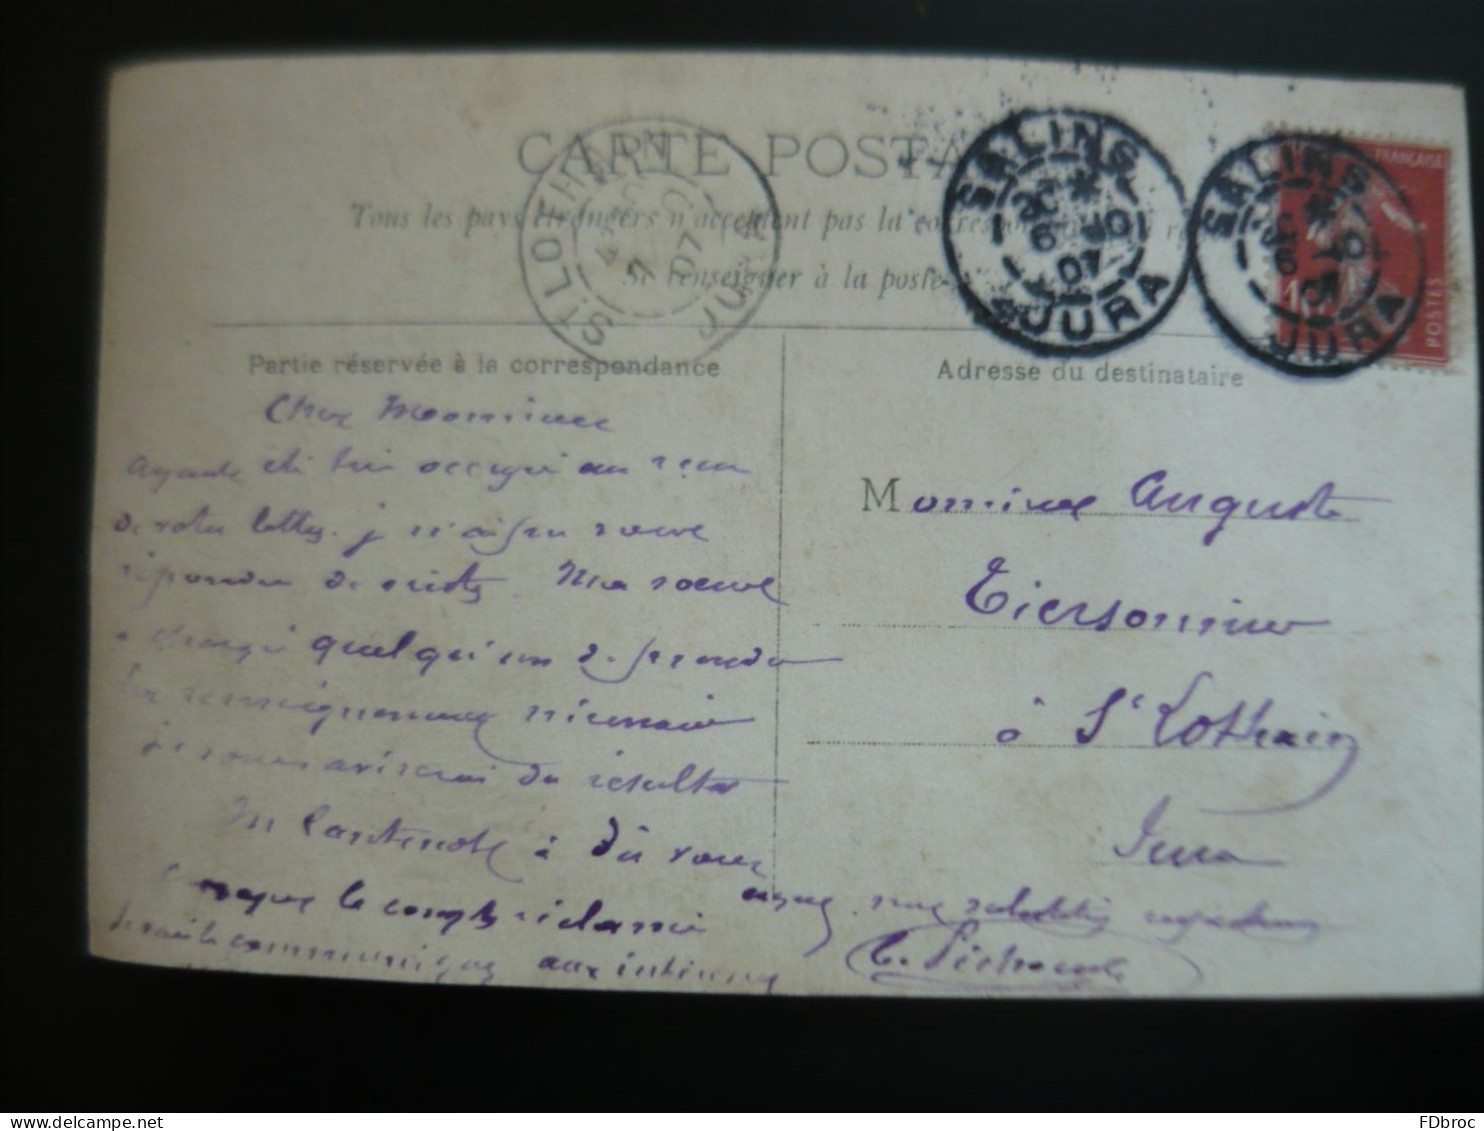 CARTE POSTA
Tous les pays étrangers n'acceptent pas la corres
Se renseigner à la poste
SALINS
6
07
JURA
SALINS
6
07
JURA
FRANÇAISE
POSTES
ST LOTHAIN
07
JURA
Partie réservée à la correspondance
Adresse du destinataire
Cher Monsieur
Ayant été très occupé au reçu
de votre lettre je n'ai pu vous
répondre de suite. Ma soeur
a chargé quelqu'un de prendre
les renseignements nécessaires
je vous aviserai du résultat
M à dû vous
le compte réclamé
communiquez aux intéressés
Monsieur Auguste
Tiersonnier
à St Lothain
Jura
salutations
FDbroc